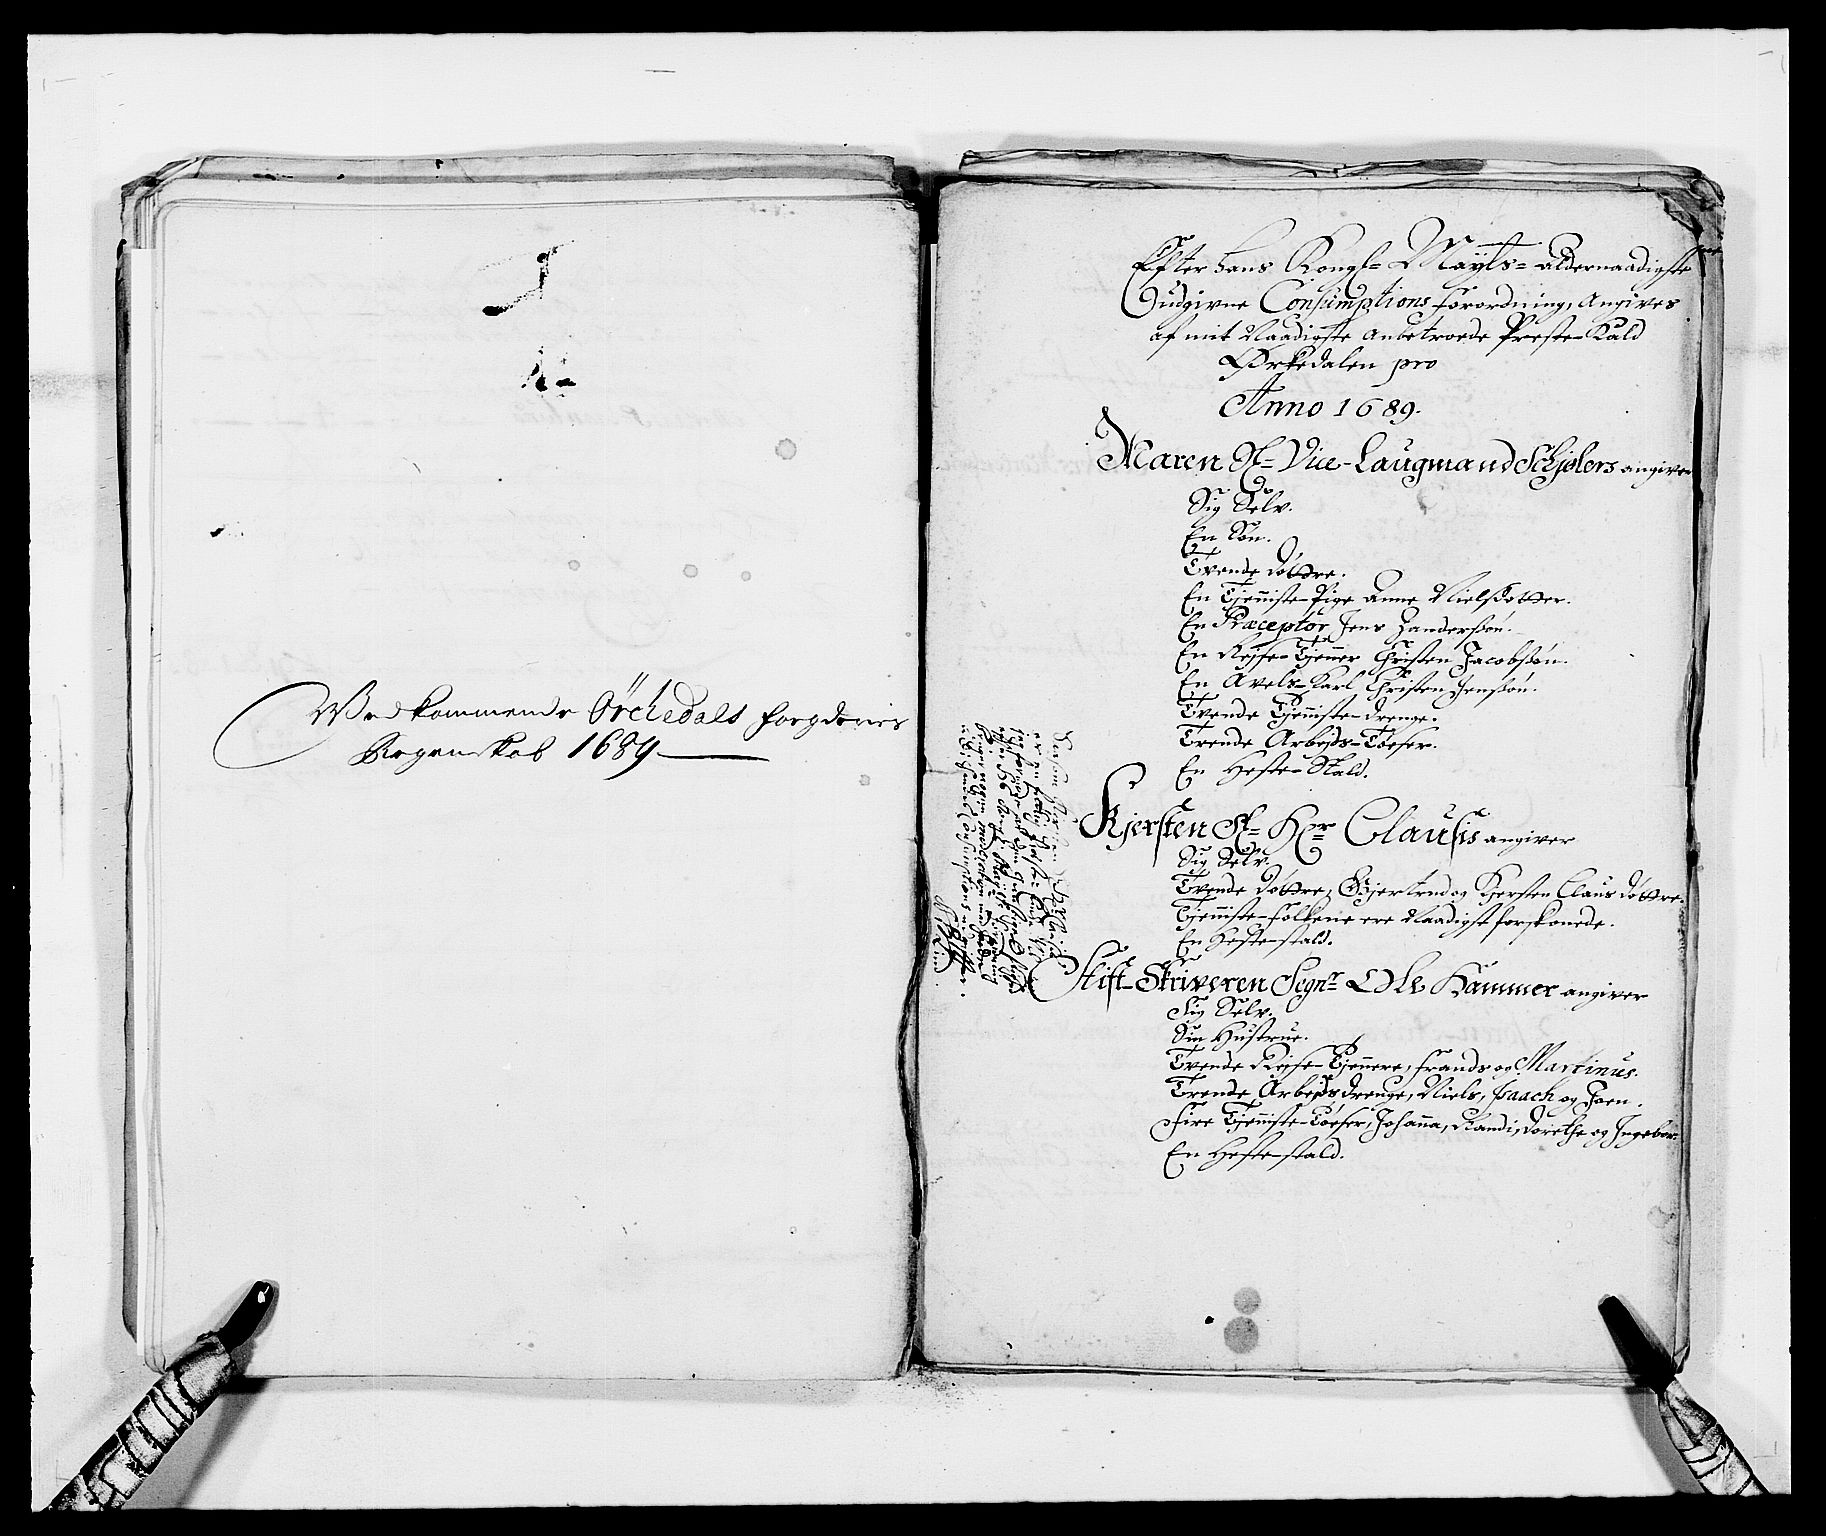 Vedkommende Örchedals fougderies
Regenskab 1689
Efter Hans Kongl= Maÿts= aldernaadigste
udgivne Consumptions forordning, Angives
af mit Naadigste anbetroede Preste-Kald
Ørkedalen pro
Anno 1689.
Maren Sl= Vice-Laugmand Schjølers angiver
Sig Selv.
En Søn.
Tvende døttre.
En Tjenniste-Pige Anne Nielsdotter.
En Præceptor Jens Zanderssøn.
En Rejse-Tjener Christen Jacobssøn.
En Avels-Karl Christen Jenssøn.
Tvende Tjenniste-drenge.
Trende Arbejds-Tøeser.
En Heste-Stald.
Kjersten Sl= Hr Clausis angiver
Sig Selv.
Tvende døttre, Gjertrud og Kjersten Claus døttre.
Tjenniste-folkene ere Naadigst forskonede.
En Heste-stald.
Stift-Skriveren Segnr Ole Hammer angiver
Sig Selv.
Sin Hustrue.
Tvende Rejse-Tjennere, frands og Martinus.
Trende Arbejds drenge, Niels, Isaach og Joen.
Fire Tjenniste-Tøeser, Johanna, Randi, dorethe og Ingebor
En Heste-stald.